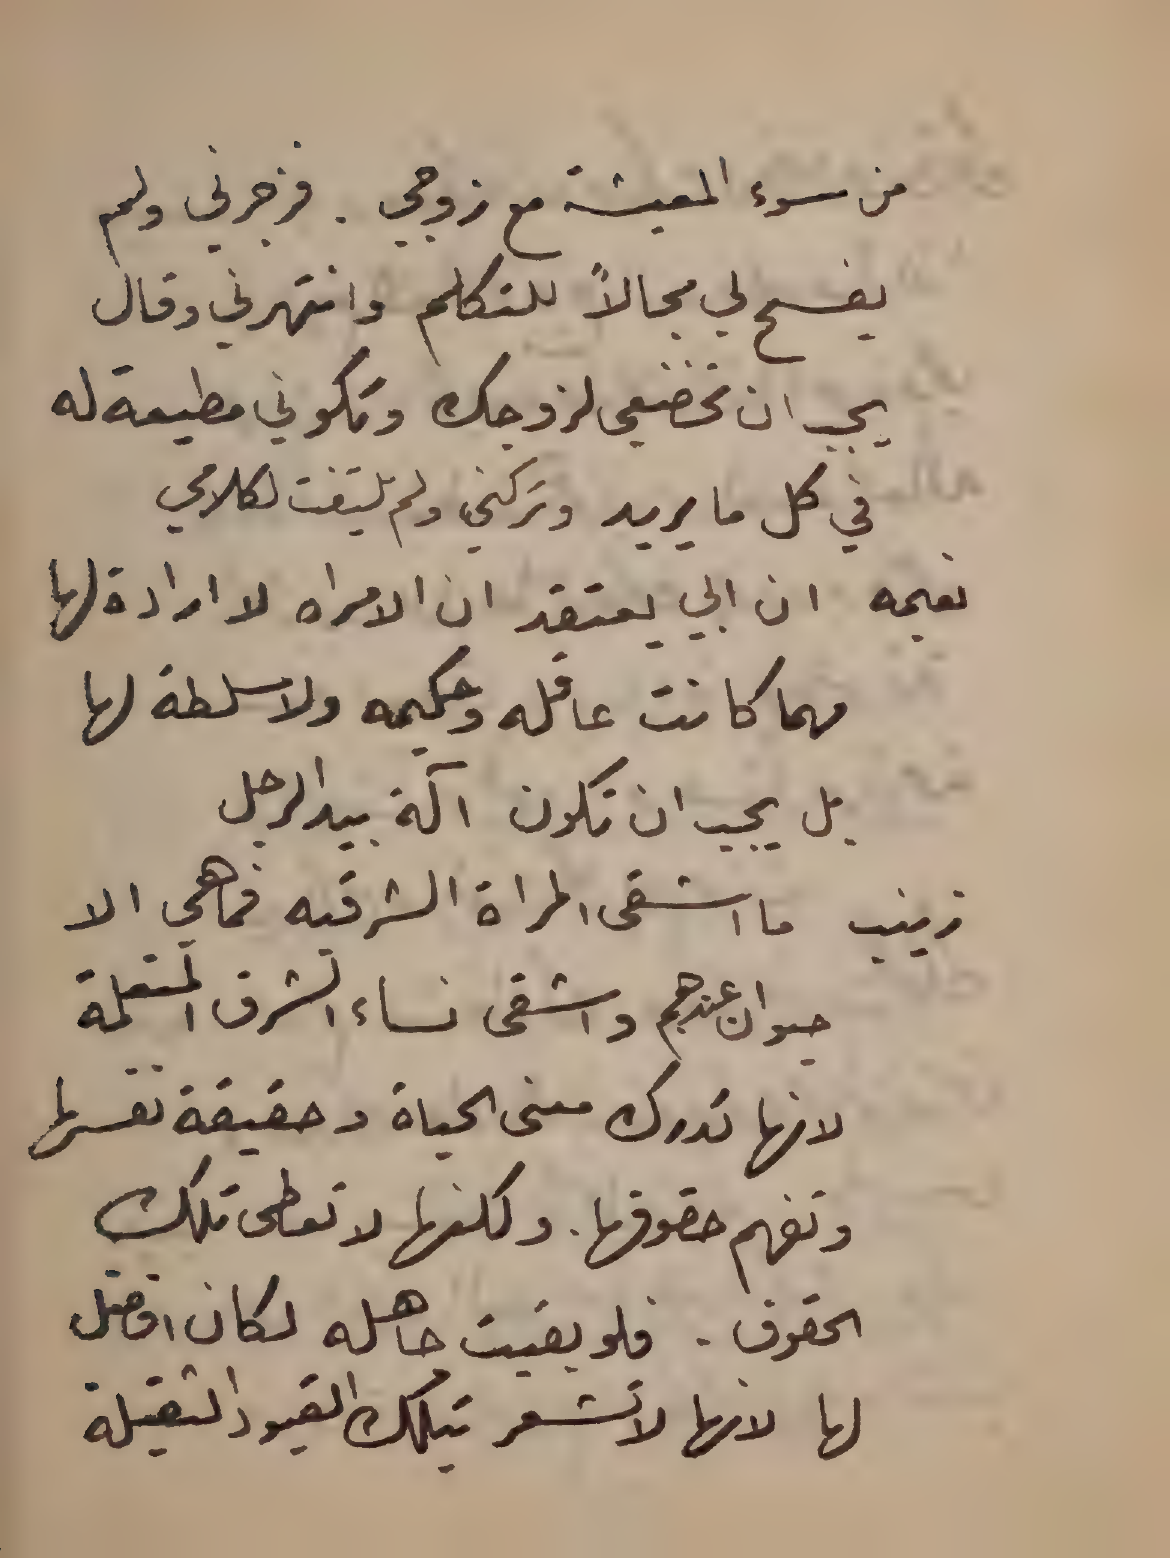 من سوء المعيشة مع زوجي . فزجرني ولم
يفسح لي مجالاً للتكلم وانتهرني وقال
يجب ان تخضعي لزوجك وتكوني مطيعة له
في كل ما يريد وتركني ولم يلتفت لكلامي
نعيمه ان ابي يعتقد ان الامراه لا ارادة لها
مهما كانت عاقله وحكيمه ولا سلطة لها
بل يجب ان تكون آلة بيد الرجل
زينب ما اشقى المراة الشرقيه فما هي الا
حيوان عندهم واشقى نساء الشرق المتعلمة
لانها تدرك معنى الحياة وحقيقة نفسها
وتفهم حقوقها . ولكنها لا تعطى تلك
الحقوق . فلو بقيت جاهله لكان افضل
لها لانها لا تشعر بتلك القيود الثقيلة